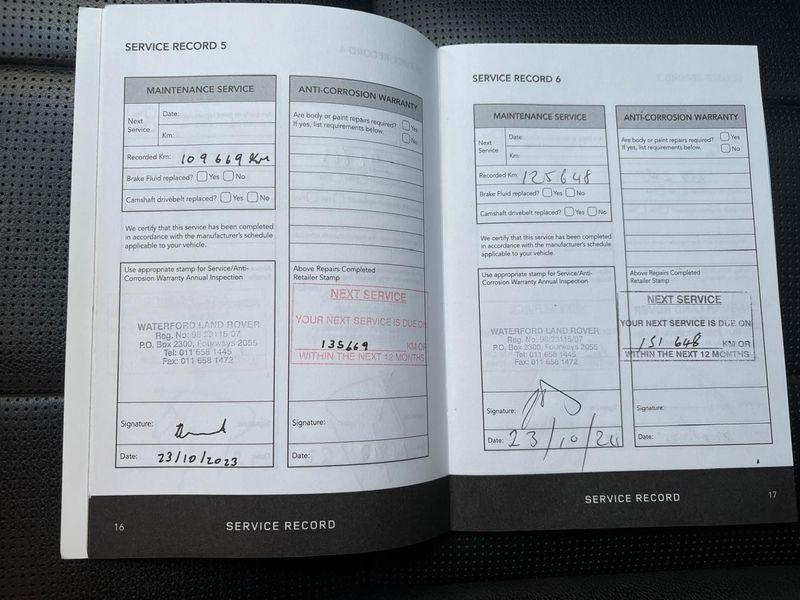 SERVICE RECORD 5
MAINTENANCE SERVICE
Next Service
Date:
Km:
Recorded Km: 109 669 Km
Brake Fluid replaced? Yes No
Camshaft drivebelt replaced? Yes No
We certify that this service has been completed
in accordance with the manufacturer's schedule
applicable to your vehicle.
Use appropriate stamp for Service/Anti-
Corrosion Warranty Annual Inspection
WATERFORD LAND ROVER
Reg. No: 98/23115/07
P.O. Box 2300, Fourways 2055
Tel: 011 658 1445
Fax: 011 658 1472
Signature:
Date: 23/10/2023
ANTI-CORROSION WARRANTY
Are body or paint repairs required? Yes
If yes, list requirements below. No
Above Repairs Completed
Retailer Stamp
NEXT SERVICE
YOUR NEXT SERVICE IS DUE ON
135669 KM OR
WITHIN THE NEXT 12 MONTHS
Signature:
Date:
16 SERVICE RECORD
SERVICE RECORD 6
MAINTENANCE SERVICE
Next Service
Date:
Km:
Recorded Km: 125648
Brake Fluid replaced? Yes No
Camshaft drivebelt replaced? Yes No
We certify that this service has been completed
in accordance with the manufacturer's schedule
applicable to your vehicle.
Use appropriate stamp for Service/Anti-
Corrosion Warranty Annual Inspection
WATERFORD LAND ROVER
Reg. No: 98/23115/07
P.O. Box 2300, Fourways 2055
Tel: 011 658 1445
Fax: 011 658 1472
Signature:
Date: 23/10/24
ANTI-CORROSION WARRANTY
Are body or paint repairs required? Yes
If yes, list requirements below. No
Above Repairs Completed
Retailer Stamp
NEXT SERVICE
YOUR NEXT SERVICE IS DUE ON
151 648 KM OR
WITHIN THE NEXT 12 MONTHS
Signature:
Date:
SERVICE RECORD 17